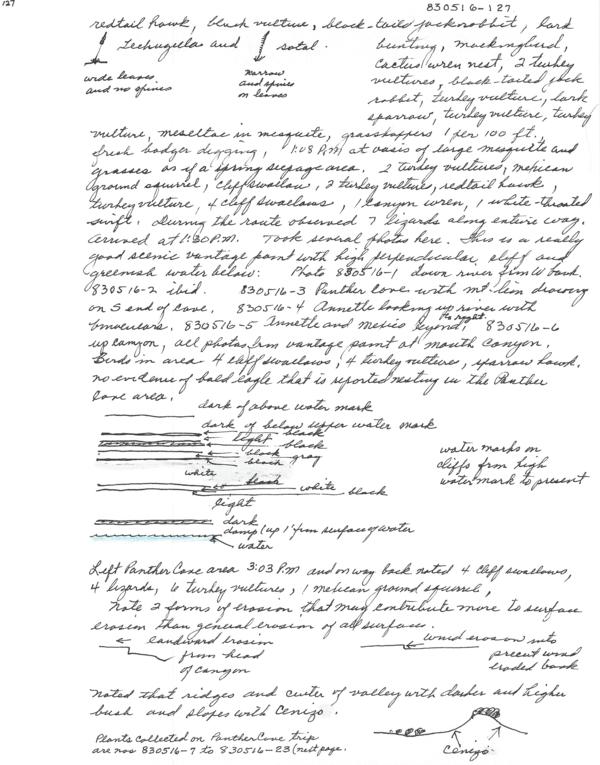 127
830516-127
redtail hawk, black vulture, black-tails jackrabbit, lark
lechuguilla and sotol. bunting, mockingbird,
wide leaves and no spines
narrow and spines on leaves
cactus wren nest, 2 turkey
vultures, black-tailed jack
rabbit, turkey vulture, lark
sparrow, turkey vulture, turkey
vulture, mescltae in mesquite, grasshoppers 1 per 100 ft.,
fresh badger digging, 1:08 P.M. at oasis of large mesquite and
grasses as if a spring seepage area. 2 turkey vultures, mexican
ground squirrel, cliff swallow, 2 turkey vulture, redtail hawk,
turkey vulture, 4 cliff swallows, 1 canyon wren, 1 white-throated
swift. During the route observed 7 lizards along entire way.
Arrived at 1:30 P.M. Took several photos here. This is a really
good scenic vantage point with high perpendicular cliff and
greenish water below: Photo 830516-1 down river from W bank.
830516-2 ibid. 830516-3 Panther Cove with mt. lion drawing
on S end of cove. 830516-4 Annette looking up river with
binoculars. 830516-5 Annette and Mexico beyond to right. 830516-6
up canyon, all photos from vantage point at mouth canyon.
Birds in area 4 cliff swallows, 4 turkey vultures, sparrow hawk.
no evidence of bald eagle that is reported nesting in the Panther
Cove area.
dark of above water mark
dark of below upper water mark
black
light
black
black
gray
black
white
black
white
black
light
dark
damp (up 1' from surface of water
water
water marks on
cliffs from high
water mark to present
Left Panther Cave area 3:03 P.M. and on way back noted 4 cliff swallows,
4 lizards, 6 turkey vultures, 1 mexican ground squirrel,
Note 2 forms of erosion that may contribute more to surface
erosion than general erosion of all surfaces.
landward erosion
from head
of canyon
wind erosion into
precut wind
eroded bank
Noted that ridges and center of valley with darker and higher
bush and slopes with Cenizo.
Plants collected on Panther Cave trip
are nos 830516-7 to 830516-23 (next page.
Cenizo